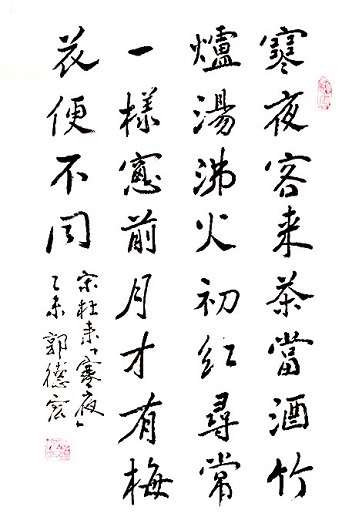 寒夜客来茶當酒竹
爐湯沸火初紅尋常
一樣窓前月才有梅
花便不同
宋杜耒「寒夜」
乙未 郭德宏